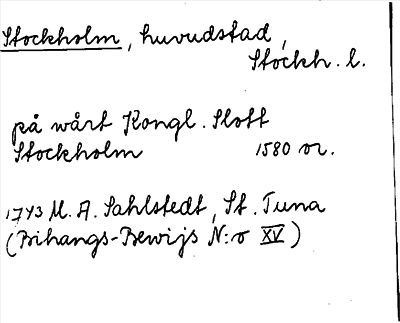 Stockholm, huvudstad,
Stockh. l.
på wårt Kongl. Slott
Stockholm 1580 or.
1743 M. A. Sahlstedt, St. Tuna
(Bihangs-Bewijs N:o XV)